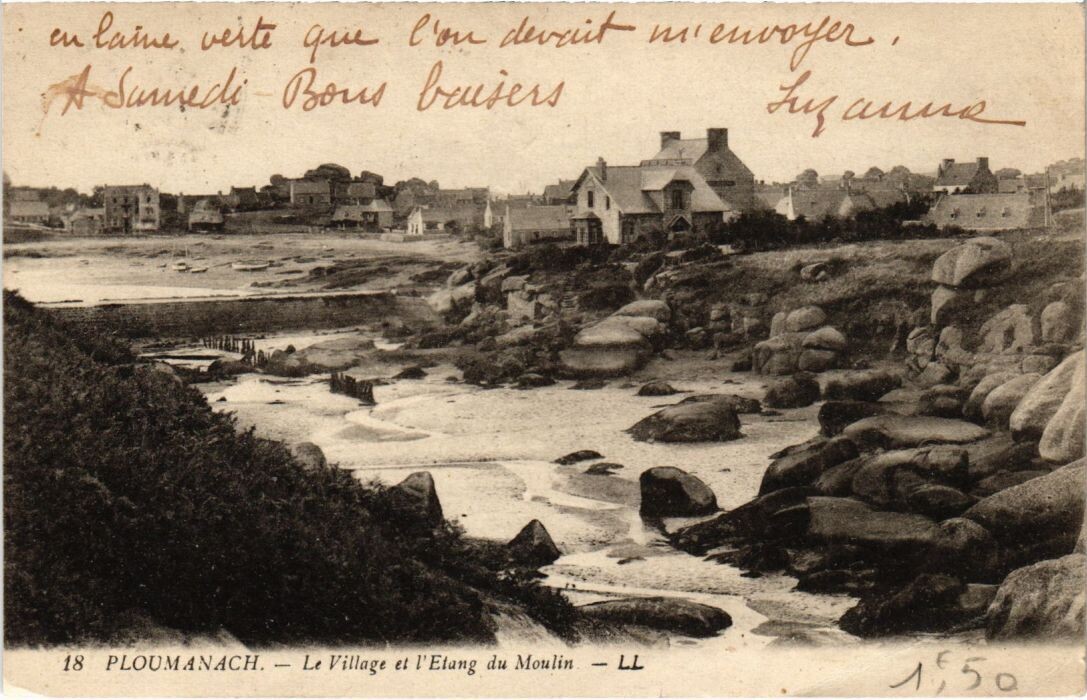 en laine verte que l'on devait m'envoyer.
A Samedi - Bons baisers Suzanne
18 PLOUMANACH. — Le Village et l'Etang du Moulin — LL
1€,50